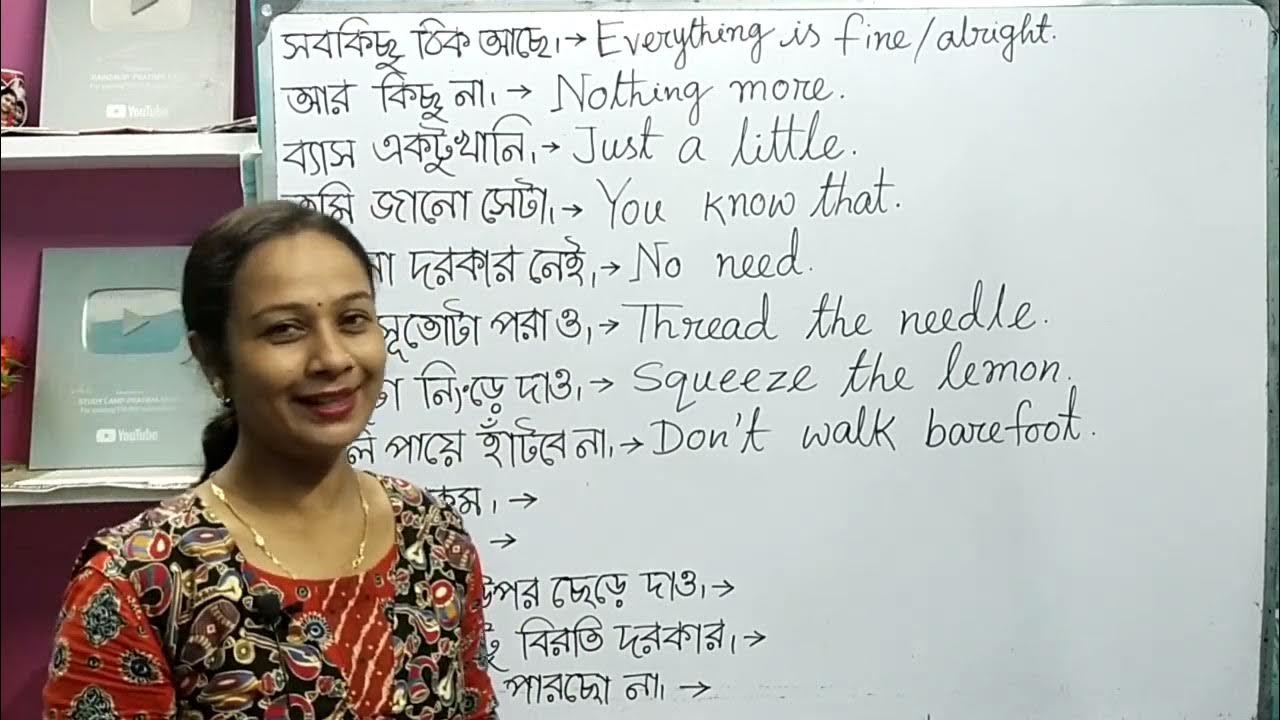 সবকিছু ঠিক আছে।→ Everything is fine/alright.
আর কিছু না।→ Nothing more.
ব্যাস একটুখানি।→ Just a little.
জানো সেটা।→ You know that.
দরকার নেই।→ No need.
পরাও।→ Thread the needle.
নিংড়ে দাও।→ Squeeze the lemon.
পায়ে হাঁটবে না।→ Don't walk barefoot.
→
→
ছেড়ে দাও।→
বিরতি দরকার।→
পারছো না। →
YouTube
YouTube